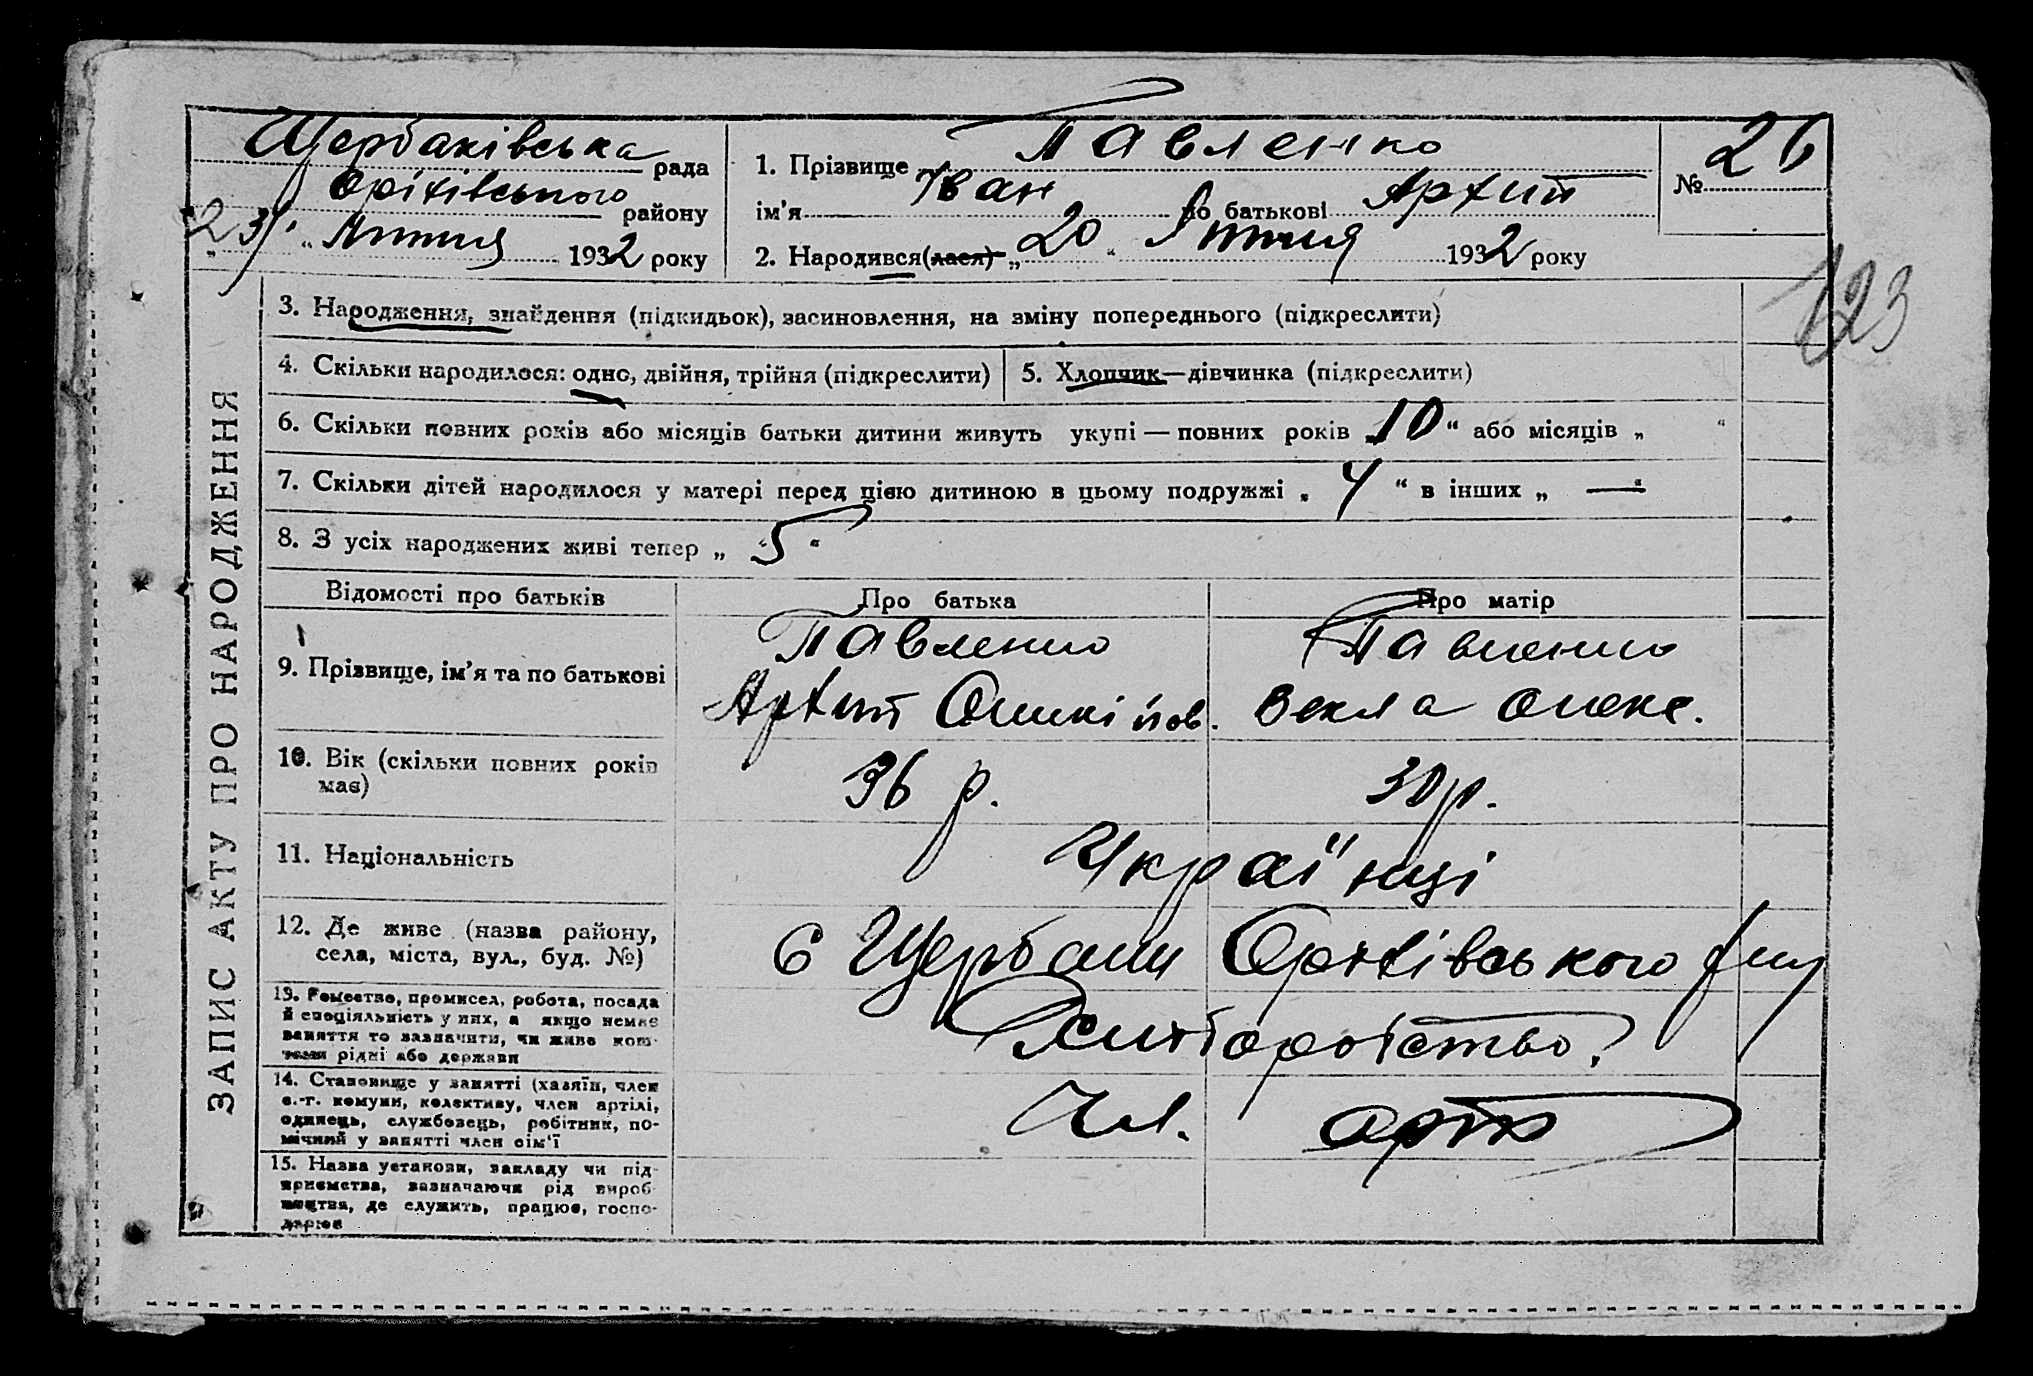 Щербаківська рада
Оріхівського району
„23“ Лютня 1932 року
1. Прізвище Павленко
ім'я Іван по батькові Архип
2. Народився(лася) „20“ Лютня 1932 року
№ 26
123
ЗАПИС АКТУ ПРО НАРОДЖЕННЯ
3. Народження, знайдення (підкидьок), засиновлення, на зміну попереднього (підкреслити)
4. Скільки народилося: одно, двійня, трійня (підкреслити)
5. Хлопчик—дівчинка (підкреслити)
6. Скільки повних років або місяців батьки дитини живуть укупі — повних років „10“ або місяців „ “
7. Скільки дітей народилося у матері перед цією дитиною в цьому подружжі „4“ в інших „—“
8. З усіх народжених живі тепер „5“
Відомості про батьків
Про батька
Про матір
9. Прізвище, ім'я та по батькові
Павленко
Архип
Павленко
Векла Олекс.
10. Вік (скільки повних років
має)
36 р.
30 р.
11. Національність
Українці
12. Де живе (назва району,
села, міста, вул., буд. №)
С Щербаки Оріхівського р-ну
13. Ремество, промисел, робота, посада
й спеціяльність у них, а якщо немає
заняття то зазначити, чи живе кош-
тами рідні або держави
Хліборобство
14. Становище у занятті (хазяїн, член
с.-г. комуни, колективу, член артілі,
одинець, службовець, робітник, по-
мічний у занятті член сім'ї
Чл. арт
15. Назва установи, закладу чи під-
приємства, зазначаючи рід вироб-
ництва, де служить, працює, госпо-
дарює